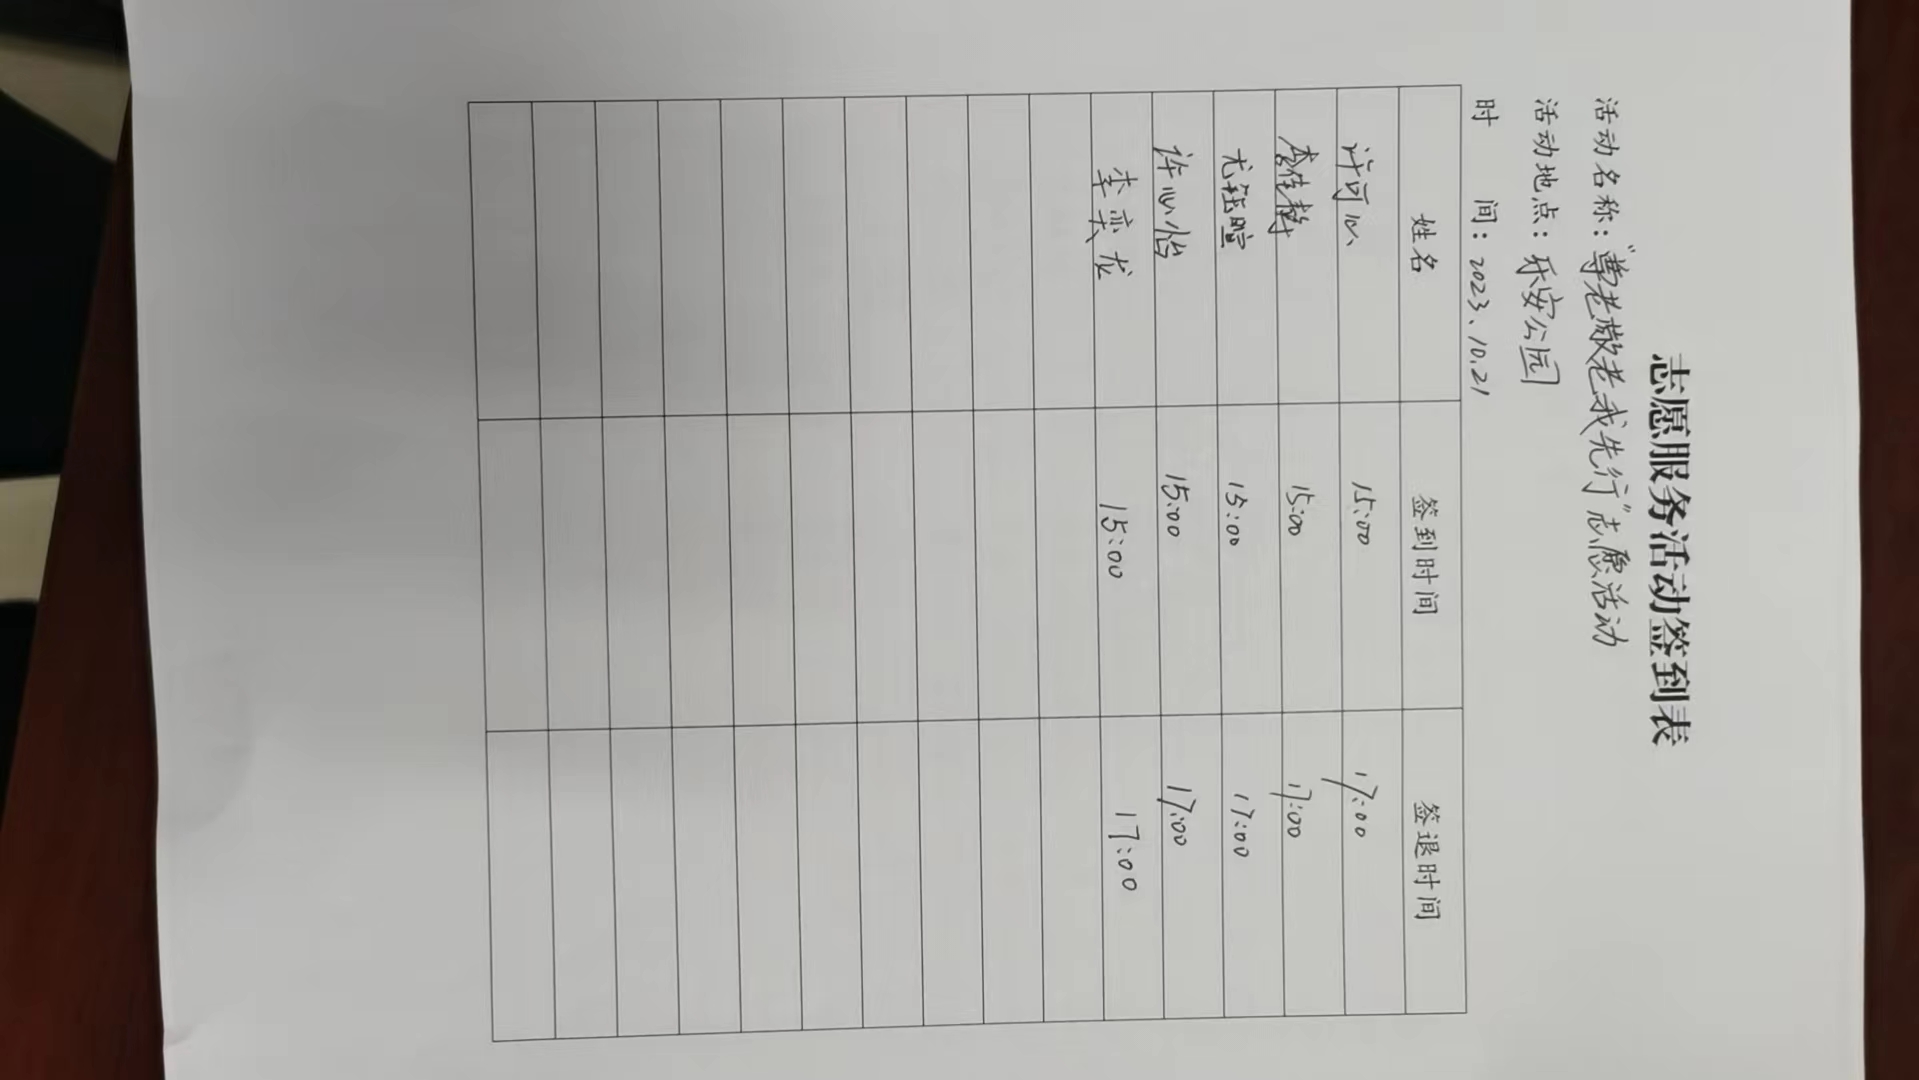 志愿服务活动签到表
活动名称：“尊老敬老我先行”志愿活动
活动地点：乐安公园
时 间：2023、10.21
姓名 签到时间 签退时间
许可心 15:00 17:00
15:00 17:00
尤钰暄 15:00 17:00
许心怡 15:00 17:00
李奕龙 15:00 17:00